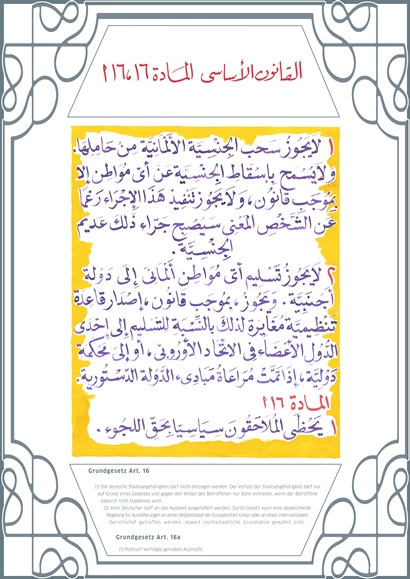 القانون الأساسى المادة ١٦، ١٦أ
١ لَايَجُوزُ سَحب الجِنسِيَّة الأَلمَانِيَّة مِن حَامِلِهَا.
وَلَايُسْمَحُ بِإسْقَاطِ الجِنْسِيَّة عَن أىّ مُوَاطِن إلا
بِمُوجَبِ قَانُون، وَلَايَجُوز تَنفِيذ هَذَا الإِجْرَاء رَغمًا
عَن الشَّخْصِ المَعنى سَيُصْبِح جَرَّاء ذَلِكَ عَدِيم
الجِنْسِيَّة.
٢ لَايَجُوزُ تَسْلِيم أىّ مُوَاطِن أَلمَانى إلى دَولَة
أَجنَبِيَّة. وَيَجُوز، بِمُوجَب قَانُون، إصْدَار قَاعِدَة
تَنظِيمِيَّة مُغَايِرَة لِذَلِكَ بِالنِّسْبَةِ لِلتَّسْلِيم إلى إحْدَى
الدُّوَل الأَعْضَاء فى الاتحَاد الأورُوبى، أَو إلى مَحْكَمَة
دَولِيَّة، إذَا تَمَّتْ مُرَاعَاةُ مَبَادِىء الدَّولَة الدّسْتُورِيَّة.
المادة ١٦أ
١ يَحْظَى المُلَاحَقُونَ سِيَاسِيًا بِحَقِّ اللجُوء.
Grundgesetz Art. 16
(1) Die deutsche Staatsangehörigkeit darf nicht entzogen werden. Der Verlust der Staatsangehörigkeit darf nur
auf Grund eines Gesetzes und gegen den Willen des Betroffenen nur dann eintreten, wenn der Betroffene
dadurch nicht staatenlos wird.
(2) Kein Deutscher darf an das Ausland ausgeliefert werden. Durch Gesetz kann eine abweichende
Regelung für Auslieferungen an einen Mitgliedstaat der Europäischen Union oder an einen internationalen
Gerichtshof getroffen werden, soweit rechtsstaatliche Grundsätze gewahrt sind.
Grundgesetz Art. 16a
(1) Politisch Verfolgte genießen Asylrecht.